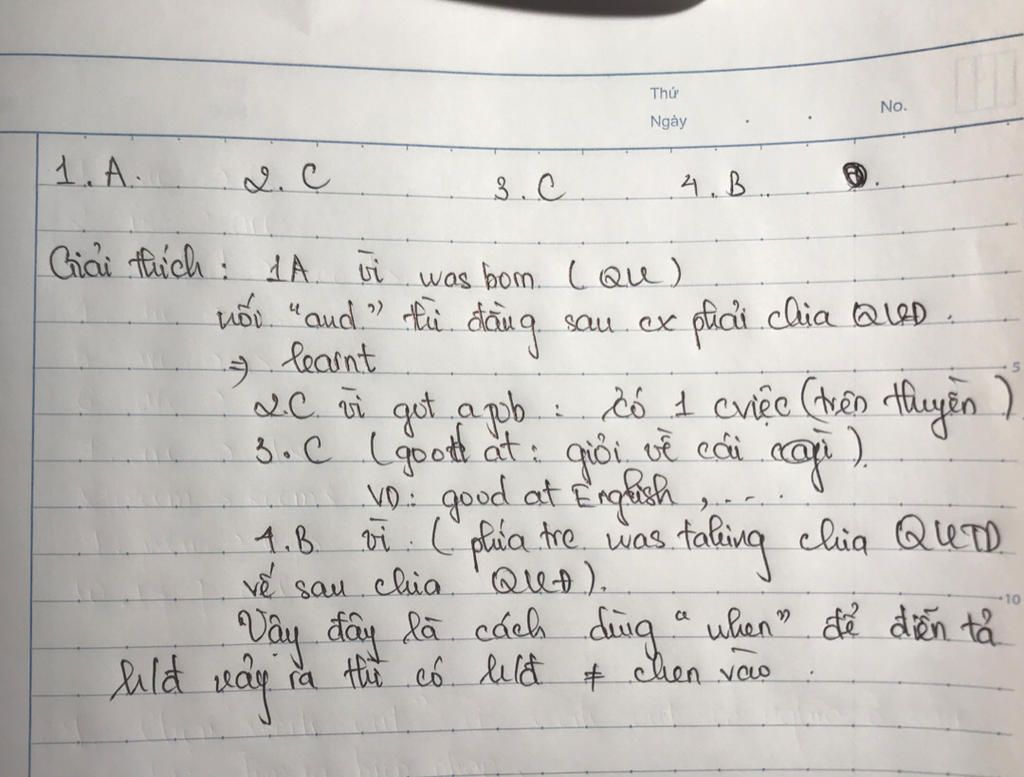 Thứ
Ngày . . No.
1. A. 2. C 3. C 4. B
Giải thích : 1A vì was born (QK)
nối "and" thì đằng sau cx phải chia QKĐ.
⇒ learnt
2.C vì got a job : có 1 cviệc (trên thuyền)
3. C (good at : giỏi về cái gì)
VD: good at English , ....
4.B vì (phía trc was taking chia QKTD
vế sau chia QKĐ).
Vậy đây là cách dùng "when" để diễn tả
h/đ xảy ra thì có h/đ ≠ chen vào .
5
10